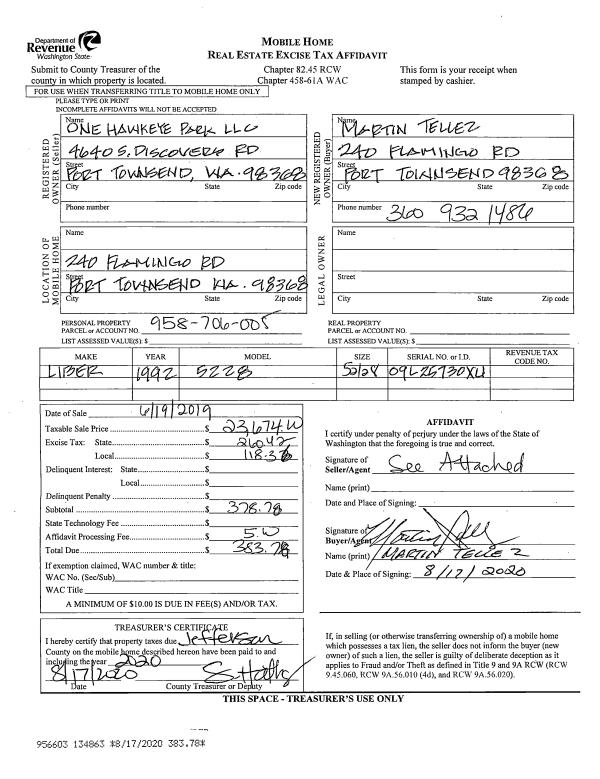 Department of
Revenue
Washington State
MOBILE HOME
REAL ESTATE EXCISE TAX AFFIDAVIT
Submit to County Treasurer of the
county in which property is located.
Chapter 82.45 RCW
Chapter 458-61A WAC
This form is your receipt when
stamped by cashier.
FOR USE WHEN TRANSFERRING TITLE TO MOBILE HOME ONLY
PLEASE TYPE OR PRINT
INCOMPLETE AFFIDAVITS WILL NOT BE ACCEPTED
REGISTERED OWNER (Seller)
Name
ONE HAWKEYE PARK LLC
4640 S. DISCOVERY RD
Street
PORT TOWNSEND, WA. 98368
City State Zip code
Phone number
NEW REGISTERED OWNER (Buyer)
Name
MARTIN TELLEZ
240 FLAMINGO RD
Street
PORT TOWNSEND 98368
City State Zip code
Phone number 360 932 1486
LOCATION OF MOBILE HOME
Name
240 FLAMINGO RD
Street
PORT TOWNSEND WA. 98368
City State Zip code
LEGAL OWNER
Name
Street
City State Zip code
PERSONAL PROPERTY
PARCEL or ACCOUNT NO. 958-706-005
LIST ASSESSED VALUE(S): $
REAL PROPERTY
PARCEL or ACCOUNT NO.
LIST ASSESSED VALUE(S): $
MAKE YEAR MODEL SIZE SERIAL NO. or I.D. REVENUE TAX CODE NO.
LIBER 1992 5228 52/28 09L26730XU
Date of Sale 6/19/2019
Taxable Sale Price $ 23,674.00
Excise Tax: State $ 260.42
Local $ 118.36
Delinquent Interest: State $
Local $
Delinquent Penalty $
Subtotal $ 378.78
State Technology Fee $
Affidavit Processing Fee $ 5.00
Total Due $ 383.78
If exemption claimed, WAC number & title:
WAC No. (Sec/Sub)
WAC Title
A MINIMUM OF $10.00 IS DUE IN FEE(S) AND/OR TAX.
AFFIDAVIT
I certify under penalty of perjury under the laws of the State of
Washington that the foregoing is true and correct.
Signature of
Seller/Agent See Attached
Name (print)
Date and Place of Signing:
Signature of
Buyer/Agent
Name (print) MARTIN TELLEZ
Date & Place of Signing: 8/17/2020
TREASURER'S CERTIFICATE
I hereby certify that property taxes due Jefferson
County on the mobile home described hereon have been paid to and
including the year 2020
8/17/2020
Date County Treasurer or Deputy
If, in selling (or otherwise transferring ownership of) a mobile home
which possesses a tax lien, the seller does not inform the buyer (new
owner) of such a lien, the seller is guilty of deliberate deception as it
applies to Fraud and/or Theft as defined in Title 9 and 9A RCW (RCW
9.45.060, RCW 9A.56.010 (4d), and RCW 9A.56.020).
THIS SPACE - TREASURER'S USE ONLY
956603 134863 *8/17/2020 383.78*